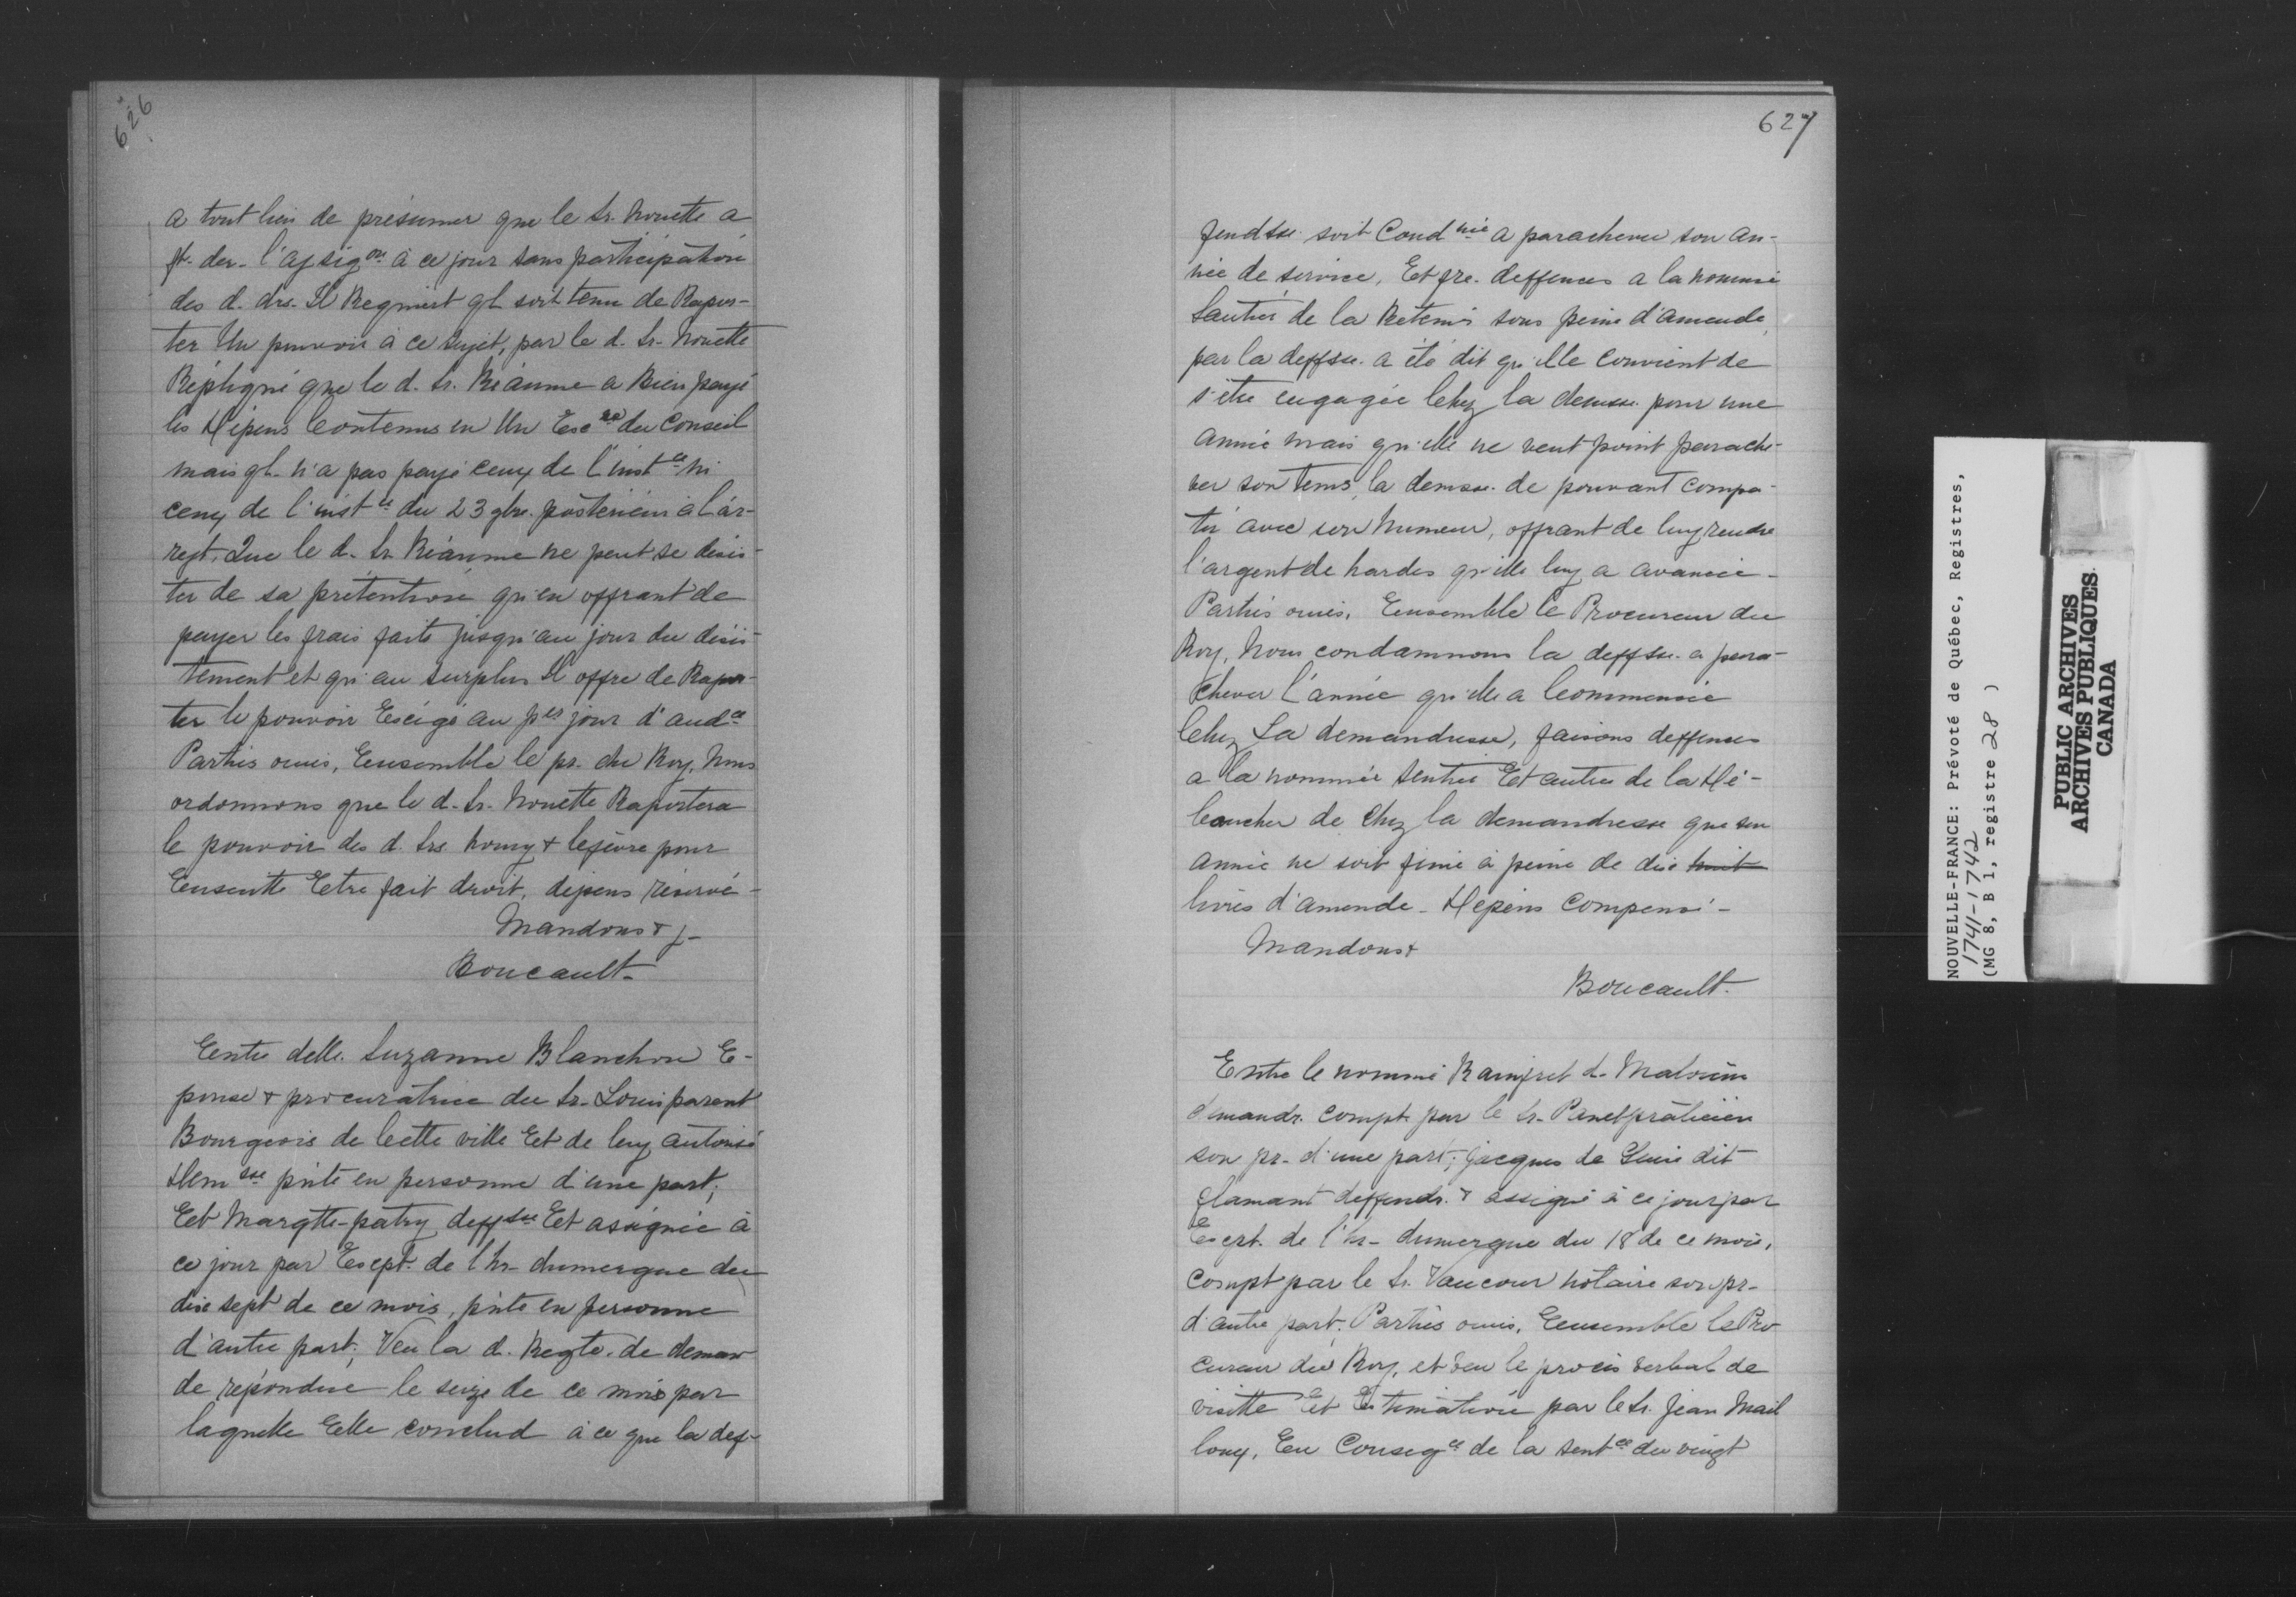 626
a tout lieu de présumer que le Sr. Nouette a
ft. der. l'assig.on à ce jour sans participation
des d. drs. Il Requiert ql. soit tenu de Rapor-
ter Un pouvoir à ce sujet, par le d. Sr. Nouette
Répliqué que le d. Sr. Réaume a Bien payé
les Dépens Contenus en Un Exe.re du Conseil
mais ql. n'a pas payé ceux de l'inst.ce ni
ceux de l'inst.ce du 23 9bre. postérieur à l'ar-
rest. Que le d. Sr. Réaume ne peut se désis-
ter de sa prétention qu'en offrant de
payer les frais faits jusqu'au jour du désis-
tement et qu'au surplus Il offre de Rapor-
ter le pouvoir Exigé au per jour d'aud.ce
Parties ouies, Ensemble le pr. du Roy, Nous
ordonnons que le d. Sr. Nouette Raportera
le pouvoir des d. Srs. & lefèvre pour
Ensuitte Etre fait droit, dépens réservé -
Mandons & j-
Boucault-
Entre delle. Suzanne Blanchon E-
pouse & procuratrice du Sr. Louis parent
Bourgeois de Cette ville Et de luy autorisé
Dem.sse pnte en personne d'une part;
Et Margtte. patry deff.sse Et assignée à
ce jour par Exept. de l'hr. dumergue du
dix sept de ce mois, pnte en personne
d'autre part; Veu la d. Reqte. de deman
de répondue le seize de ce mois par
laquelle Elle conclud à ce que la def-
627
fendsse. soit Cond.née a parachever son an-
née de service, Et fre. deffences a la nommée
Sautier de la Retenir sous peine d'amende,
par la deffsse. a été dit qu'elle convient de
s'etre engagée Chez la demsse. pour une
année mais qu'elle ne veut point parache-
ver son tems, la demsse. de pouvant compa-
tir avec son humeur, offrant de luy rendre
l'argent de hardes qu'elle luy a avancée -
Parties ouies, Ensemble le Procureur du
Roy, Nous condamnons la deffsse. a para-
chever l'année qu'elle a Commencée
Chez La demandresse, faisons deffences
a la nommée Sentier Et autres de la Dé-
baucher de chez la demandresse que son
année ne soit finie à peine de dix huit
livres d'amende - Dépens Compensé -
Mandons &
Boucault.
Entre le nommé Rainfret d. Malouin
demandr. compt. par le Sr. Panet praticien
son pr. d'une part; jacques de Guise dit
flamant deffendr. & assigné à ce jour par
Exept. de l'hr. dumergue du 18 de ce mois,
compt par le Sr. Vaucour notaire son pr.
d'autre part; Parties ouies, Ensemble le Pro
cureur du Roy, et veu le procès verbal de
visitte Et Estimation par le Sr. Jean Mail
loux, En Conseq.ce de la sent.ce du vingt
NOUVELLE-FRANCE: Prévoté de Québec, Registres,
1741-1742
(MG 8, B 1, registre 28 )
PUBLIC ARCHIVES
ARCHIVES PUBLIQUES
CANADA